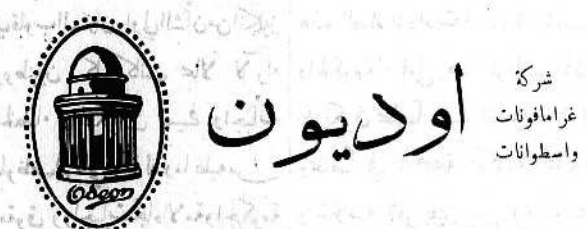 شركة
غرامافونات
واسطوانات
اوديون
Odeon